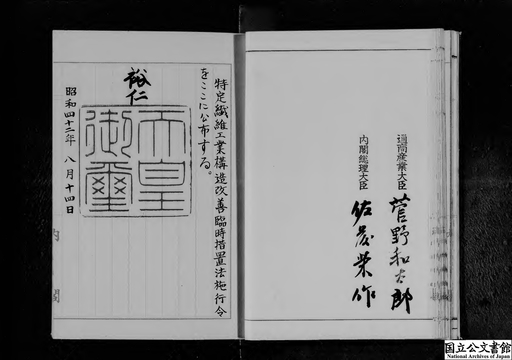 特定繊維工業構造改善臨時措置法施行令
をここに公布する。
裕仁
天皇
御璽
昭和四十二年八月十四日
内閣
通商産業大臣 菅野和太郎
内閣総理大臣 佐藤榮作
国立公文書館
National Archives of Japan